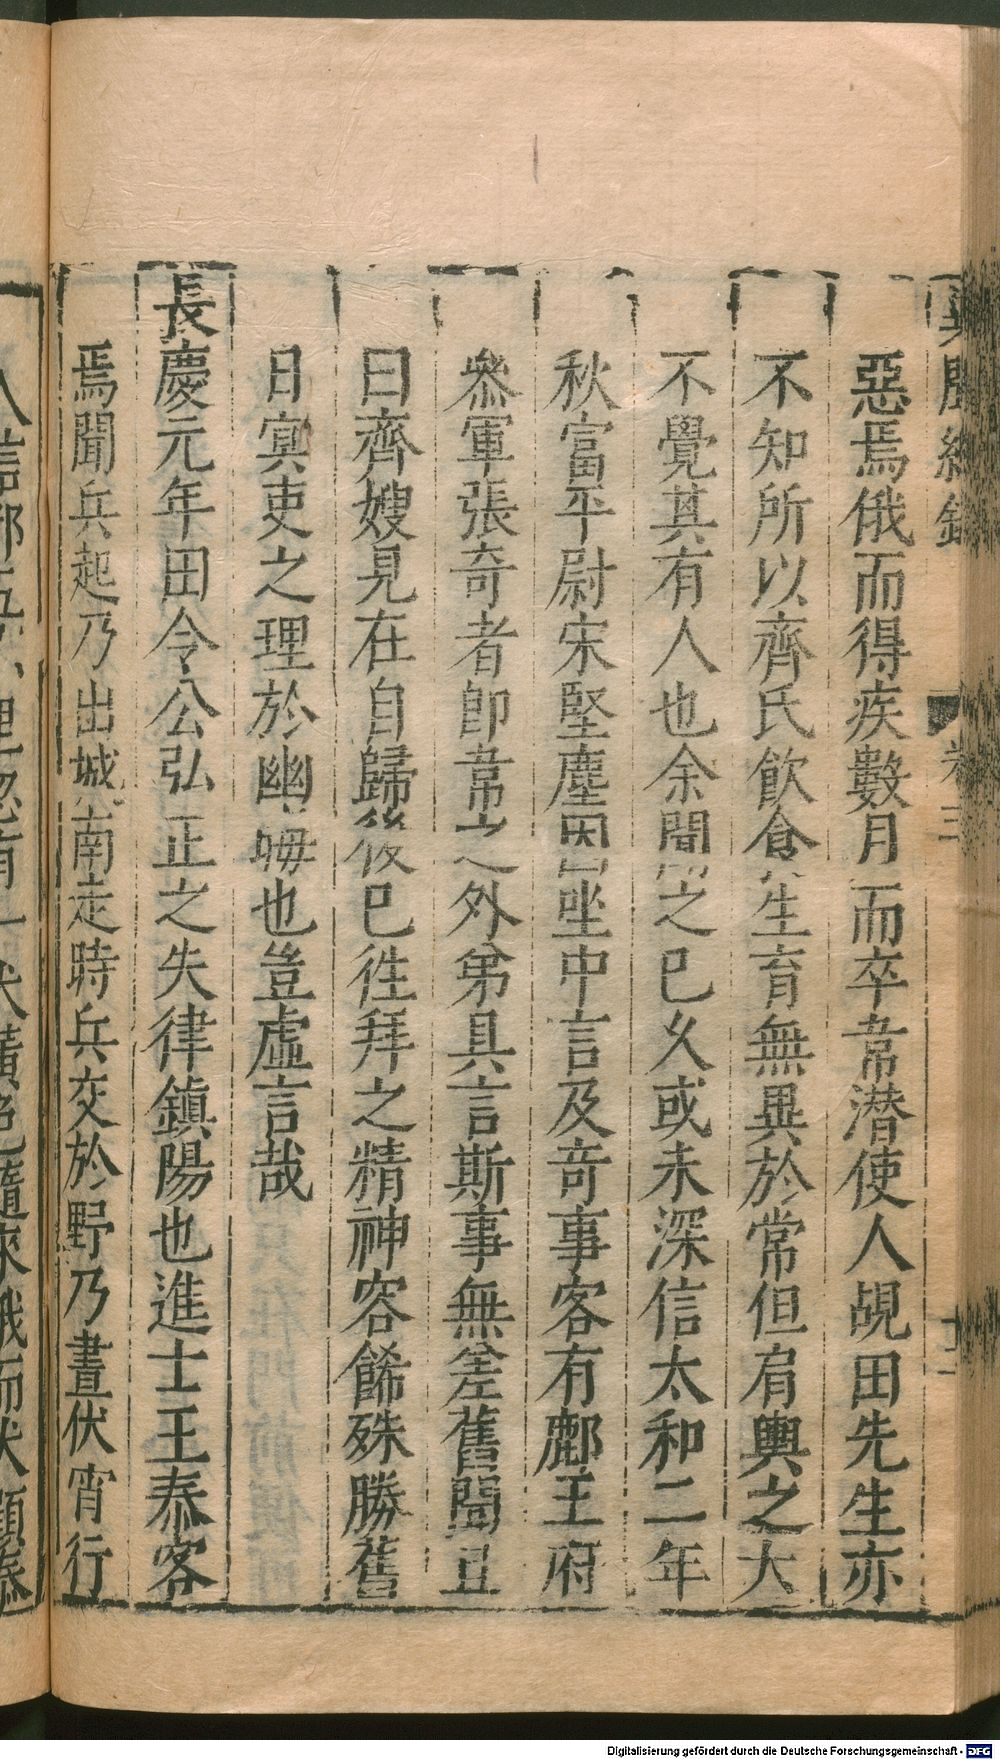 惡焉俄而得疾數月而卒韋潜使人覘田先生亦
不知所以齊氏飲食生育無異於常但肩輿之夫
不覺其有人也余聞之已久或未深信太和二年
秋富平尉宋堅塵因坐中言及竒事客有鄜王府
叅軍張奇者卽韋之外弟具言斯事無差舊聞且
曰齊嫂見在自歸後已徃拜之精神容餙殊勝舊
日㝠吏之理於幽晦也豈虛言哉
長慶元年田令公弘正之失律鎮陽也進士王泰客
焉聞兵起乃出城南走時兵交於野乃晝伏宵行
Digitalisierung gefördert durch die Deutsche Forschungsgemeinschaft - DFG